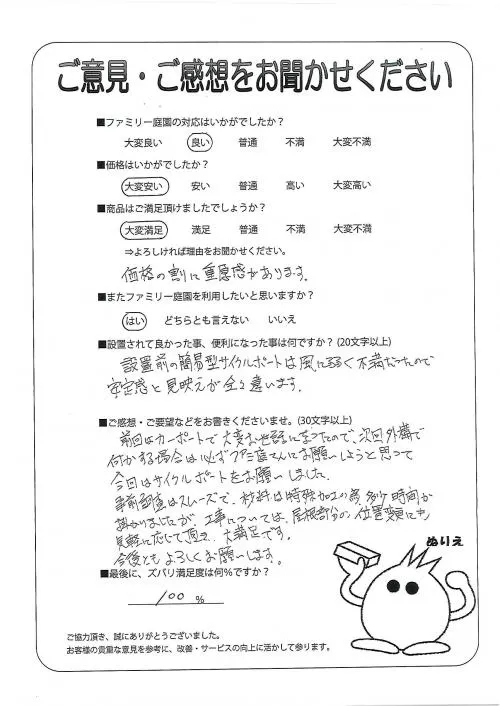 ご意見・ご感想をお聞かせください
■ファミリー庭園の対応はいかがでしたか?
大変良い 良い 普通 不満 大変不満
■価格はいかがでしたか?
大変安い 安い 普通 高い 大変高い
■商品はご満足頂けましたでしょうか?
大変満足 満足 普通 不満 大変不満
⇒よろしければ理由をお聞かせください。
価格の割に重厚感があります。
■またファミリー庭園を利用したいと思いますか?
はい どちらとも言えない いいえ
■設置されて良かった事、便利になった事は何ですか? (20文字以上)
設置前の簡易型サイクルポートは風に弱く不満だったので
安定感と見映えが全々違います。
■ご感想・ご要望などをお書きくださいませ。(30文字以上)
前回はカーポートで大変お世話になったので、次回外構で
何かする場合は必ずファミ庭さんにお願いしようと思って
今回はサイクルポートをお願いしました。
事前調査はスムーズで、材料は特殊加工の為、多少時間が
掛かりましたが、工事については、屋根部分の位置変更にも
気軽に応じて頂き、大満足です。
今後ともよろしくお願いします。
■最後に、ズバリ満足度は何%ですか?
100 %
ぬりえ
ご協力頂き、誠にありがとうございました。
お客様の貴重な意見を参考に、改善・サービスの向上に活かして参ります。